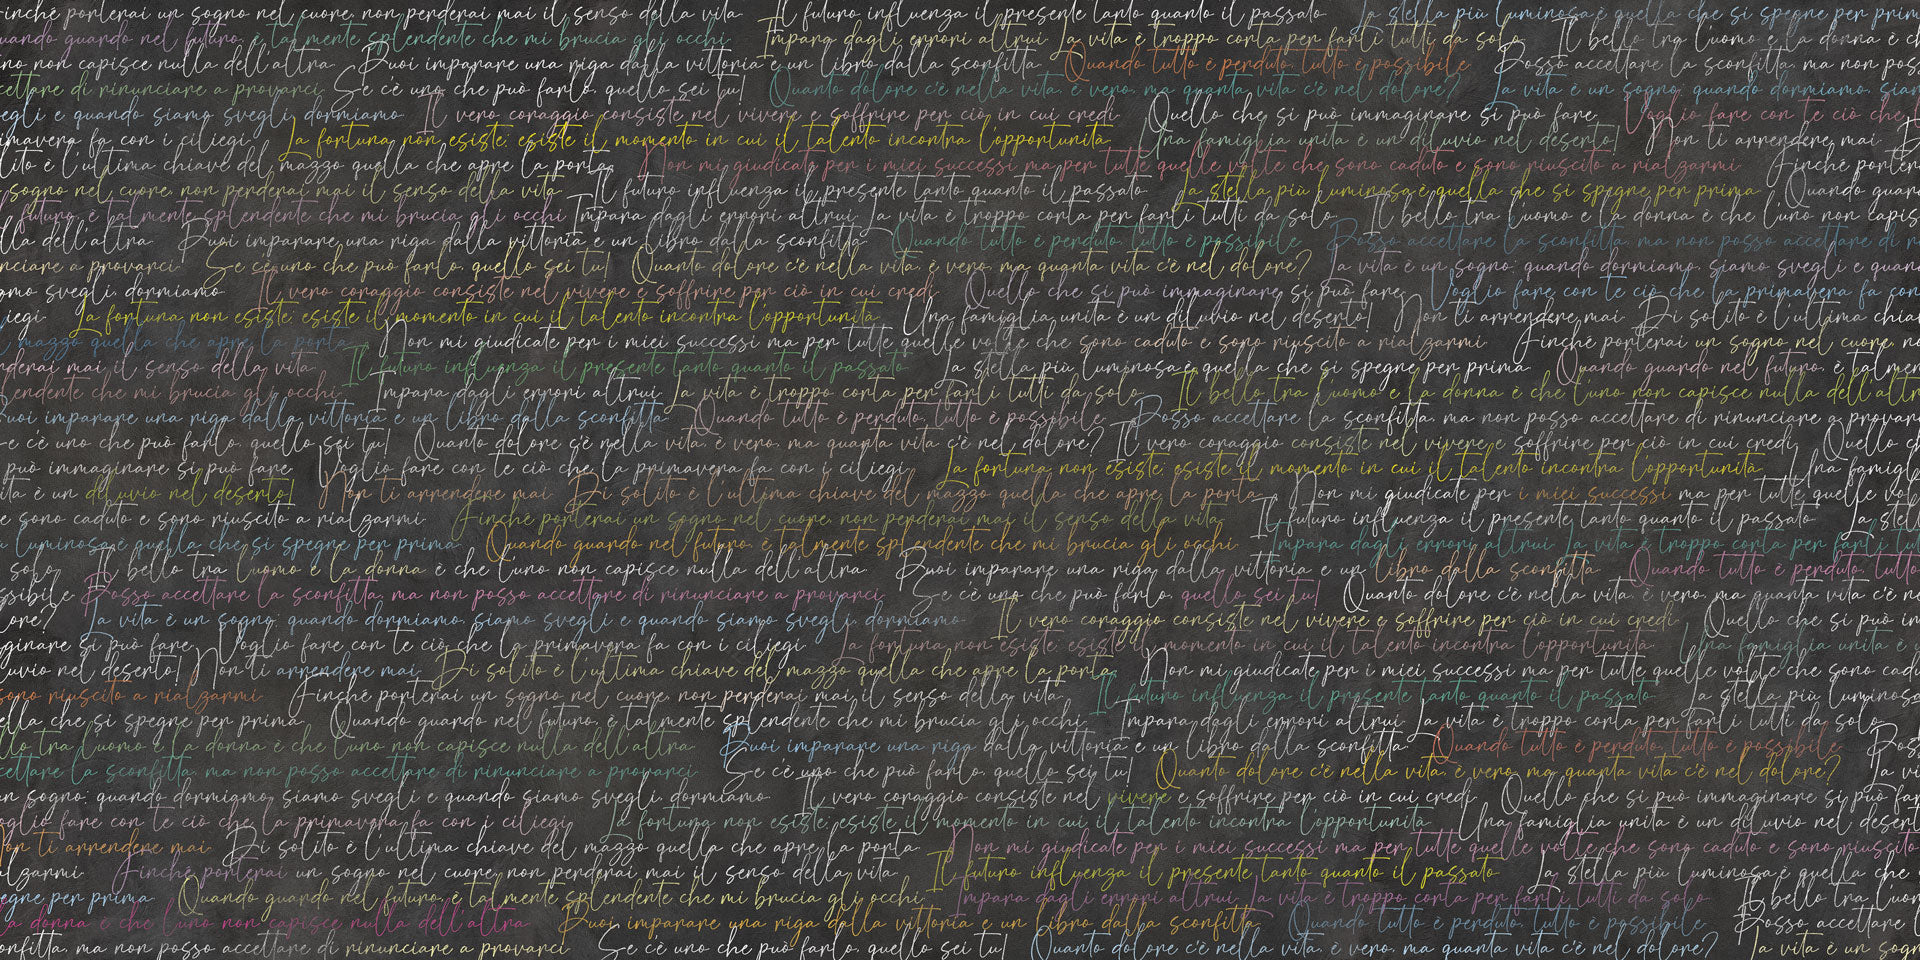 Finché porterai un sogno nel cuore, non perderai mai il senso della vita Il futuro influenza il presente tanto quanto il passato La stella più luminosa è quella che si spegne per prima
Quando guardo nel futuro, è talmente splendente che mi brucia gli occhi Impara dagli errori altrui. La vita è troppo corta per farli tutti da solo. Il bello tra l'uomo e la donna è ch
no non capisce nulla dell'altra Puoi imparare una riga dalla vittoria e un libro dalla sconfitta Quando tutto è perduto, tutto è possibile Posso accettare la sconfitta, ma non pos
cettare di rinunciare a provarci Se c'è uno che può farlo, quello sei tu! Quanto dolore c'è nella vita, è vero, ma quanta vita c'è nel dolore? La vita è un sogno: quando dormiamo, siam
egli e quando siamo svegli, dormiamo Il vero coraggio consiste nel vivere e soffrire per ciò in cui credi Quello che si può immaginare si può fare. Voglio fare con te ciò che
imavera fa con i ciliegi La fortuna non esiste: esiste il momento in cui il talento incontra l'opportunità Una famiglia unita è un diluvio nel deserto! Non ti arrendere mai. D
lito è l'ultima chiave del mazzo quella che apre la porta Non mi giudicate per i miei successi ma per tutte quelle volte che sono caduto e sono riuscito a rialzarmi Finché porter
sogno nel cuore, non perderai mai il senso della vita Il futuro influenza il presente tanto quanto il passato La stella più luminosa è quella che si spegne per prima Quando guar
futuro, è talmente splendente che mi brucia gli occhi Impara dagli errori altrui. La vita è troppo corta per farli tutti da solo. Il bello tra l'uomo e la donna è che l'uno non capis
lla dell'altra Puoi imparare una riga dalla vittoria e un libro dalla sconfitta Quando tutto è perduto, tutto è possibile Posso accettare la sconfitta, ma non posso accettare di r
nciare a provarci Se c'è uno che può farlo, quello sei tu! Quanto dolore c'è nella vita, è vero, ma quanta vita c'è nel dolore? La vita è un sogno: quando dormiamo, siamo svegli e quan
amo svegli, dormiamo Il vero coraggio consiste nel vivere e soffrire per ciò in cui credi Quello che si può immaginare si può fare. Voglio fare con te ciò che la primavera fa con
iegi La fortuna non esiste: esiste il momento in cui il talento incontra l'opportunità Una famiglia unita è un diluvio nel deserto! Non ti arrendere mai. Di solito è l'ultima chia
l mazzo quella che apre la porta Non mi giudicate per i miei successi ma per tutte quelle volte che sono caduto e sono riuscito a rialzarmi Finché porterai un sogno nel cuore, no
rderai mai il senso della vita Il futuro influenza il presente tanto quanto il passato La stella più luminosa è quella che si spegne per prima Quando guardo nel futuro, è talmen
lendente che mi brucia gli occhi Impara dagli errori altrui. La vita è troppo corta per farli tutti da solo. Il bello tra l'uomo e la donna è che l'uno non capisce nulla dell'altra
Puoi imparare una riga dalla vittoria e un libro dalla sconfitta Quando tutto è perduto, tutto è possibile Posso accettare la sconfitta, ma non posso accettare di rinunciare a provarc
Se c'è uno che può farlo, quello sei tu! Quanto dolore c'è nella vita, è vero, ma quanta vita c'è nel dolore? Il vero coraggio consiste nel vivere e soffrire per ciò in cui credi Quello ch
può immaginare si può fare. Voglio fare con te ciò che la primavera fa con i ciliegi La fortuna non esiste: esiste il momento in cui il talento incontra l'opportunità Una famigl
ita è un diluvio nel deserto! Non ti arrendere mai. Di solito è l'ultima chiave del mazzo quella che apre la porta Non mi giudicate per i miei successi ma per tutte quelle vol
e sono caduto e sono riuscito a rialzarmi Finché porterai un sogno nel cuore, non perderai mai il senso della vita Il futuro influenza il presente tanto quanto il passato La stell
ù luminosa è quella che si spegne per prima Quando guardo nel futuro, è talmente splendente che mi brucia gli occhi Impara dagli errori altrui. La vita è troppo corta per farli tut
solo. Il bello tra l'uomo e la donna è che l'uno non capisce nulla dell'altra Puoi imparare una riga dalla vittoria e un libro dalla sconfitta Quando tutto è perduto, tutto
ssibile Posso accettare la sconfitta, ma non posso accettare di rinunciare a provarci Se c'è uno che può farlo, quello sei tu! Quanto dolore c'è nella vita, è vero, ma quanta vita c'è ne
ore? La vita è un sogno: quando dormiamo, siamo svegli e quando siamo svegli, dormiamo Il vero coraggio consiste nel vivere e soffrire per ciò in cui credi Quello che si può im
ginare si può fare. Voglio fare con te ciò che la primavera fa con i ciliegi La fortuna non esiste: esiste il momento in cui il talento incontra l'opportunità Una famiglia unita è u
luvio nel deserto! Non ti arrendere mai. Di solito è l'ultima chiave del mazzo quella che apre la porta Non mi giudicate per i miei successi ma per tutte quelle volte che sono cad
sono riuscito a rialzarmi Finché porterai un sogno nel cuore, non perderai mai il senso della vita Il futuro influenza il presente tanto quanto il passato La stella più luminosa
ella che si spegne per prima Quando guardo nel futuro, è talmente splendente che mi brucia gli occhi Impara dagli errori altrui. La vita è troppo corta per farli tutti da solo.
llo tra l'uomo e la donna è che l'uno non capisce nulla dell'altra Puoi imparare una riga dalla vittoria e un libro dalla sconfitta Quando tutto è perduto, tutto è possibile Poss
cettare la sconfitta, ma non posso accettare di rinunciare a provarci Se c'è uno che può farlo, quello sei tu! Quanto dolore c'è nella vita, è vero, ma quanta vita c'è nel dolore? La vi
n sogno: quando dormiamo, siamo svegli e quando siamo svegli, dormiamo Il vero coraggio consiste nel vivere e soffrire per ciò in cui credi Quello che si può immaginare si può far
oglio fare con te ciò che la primavera fa con i ciliegi La fortuna non esiste: esiste il momento in cui il talento incontra l'opportunità Una famiglia unita è un diluvio nel desert
Non ti arrendere mai. Di solito è l'ultima chiave del mazzo quella che apre la porta Non mi giudicate per i miei successi ma per tutte quelle volte che sono caduto e sono riuscito
alzarmi Finché porterai un sogno nel cuore, non perderai mai il senso della vita Il futuro influenza il presente tanto quanto il passato La stella più luminosa è quella che
egne per prima Quando guardo nel futuro, è talmente splendente che mi brucia gli occhi Impara dagli errori altrui. La vita è troppo corta per farli tutti da solo. Il bello tra l'uom
a donna è che l'uno non capisce nulla dell'altra Puoi imparare una riga dalla vittoria e un libro dalla sconfitta Quando tutto è perduto, tutto è possibile Posso accettare l
onfitta, ma non posso accettare di rinunciare a provarci Se c'è uno che può farlo, quello sei tu! Quanto dolore c'è nella vita, è vero, ma quanta vita c'è nel dolore? La vita è un sogn